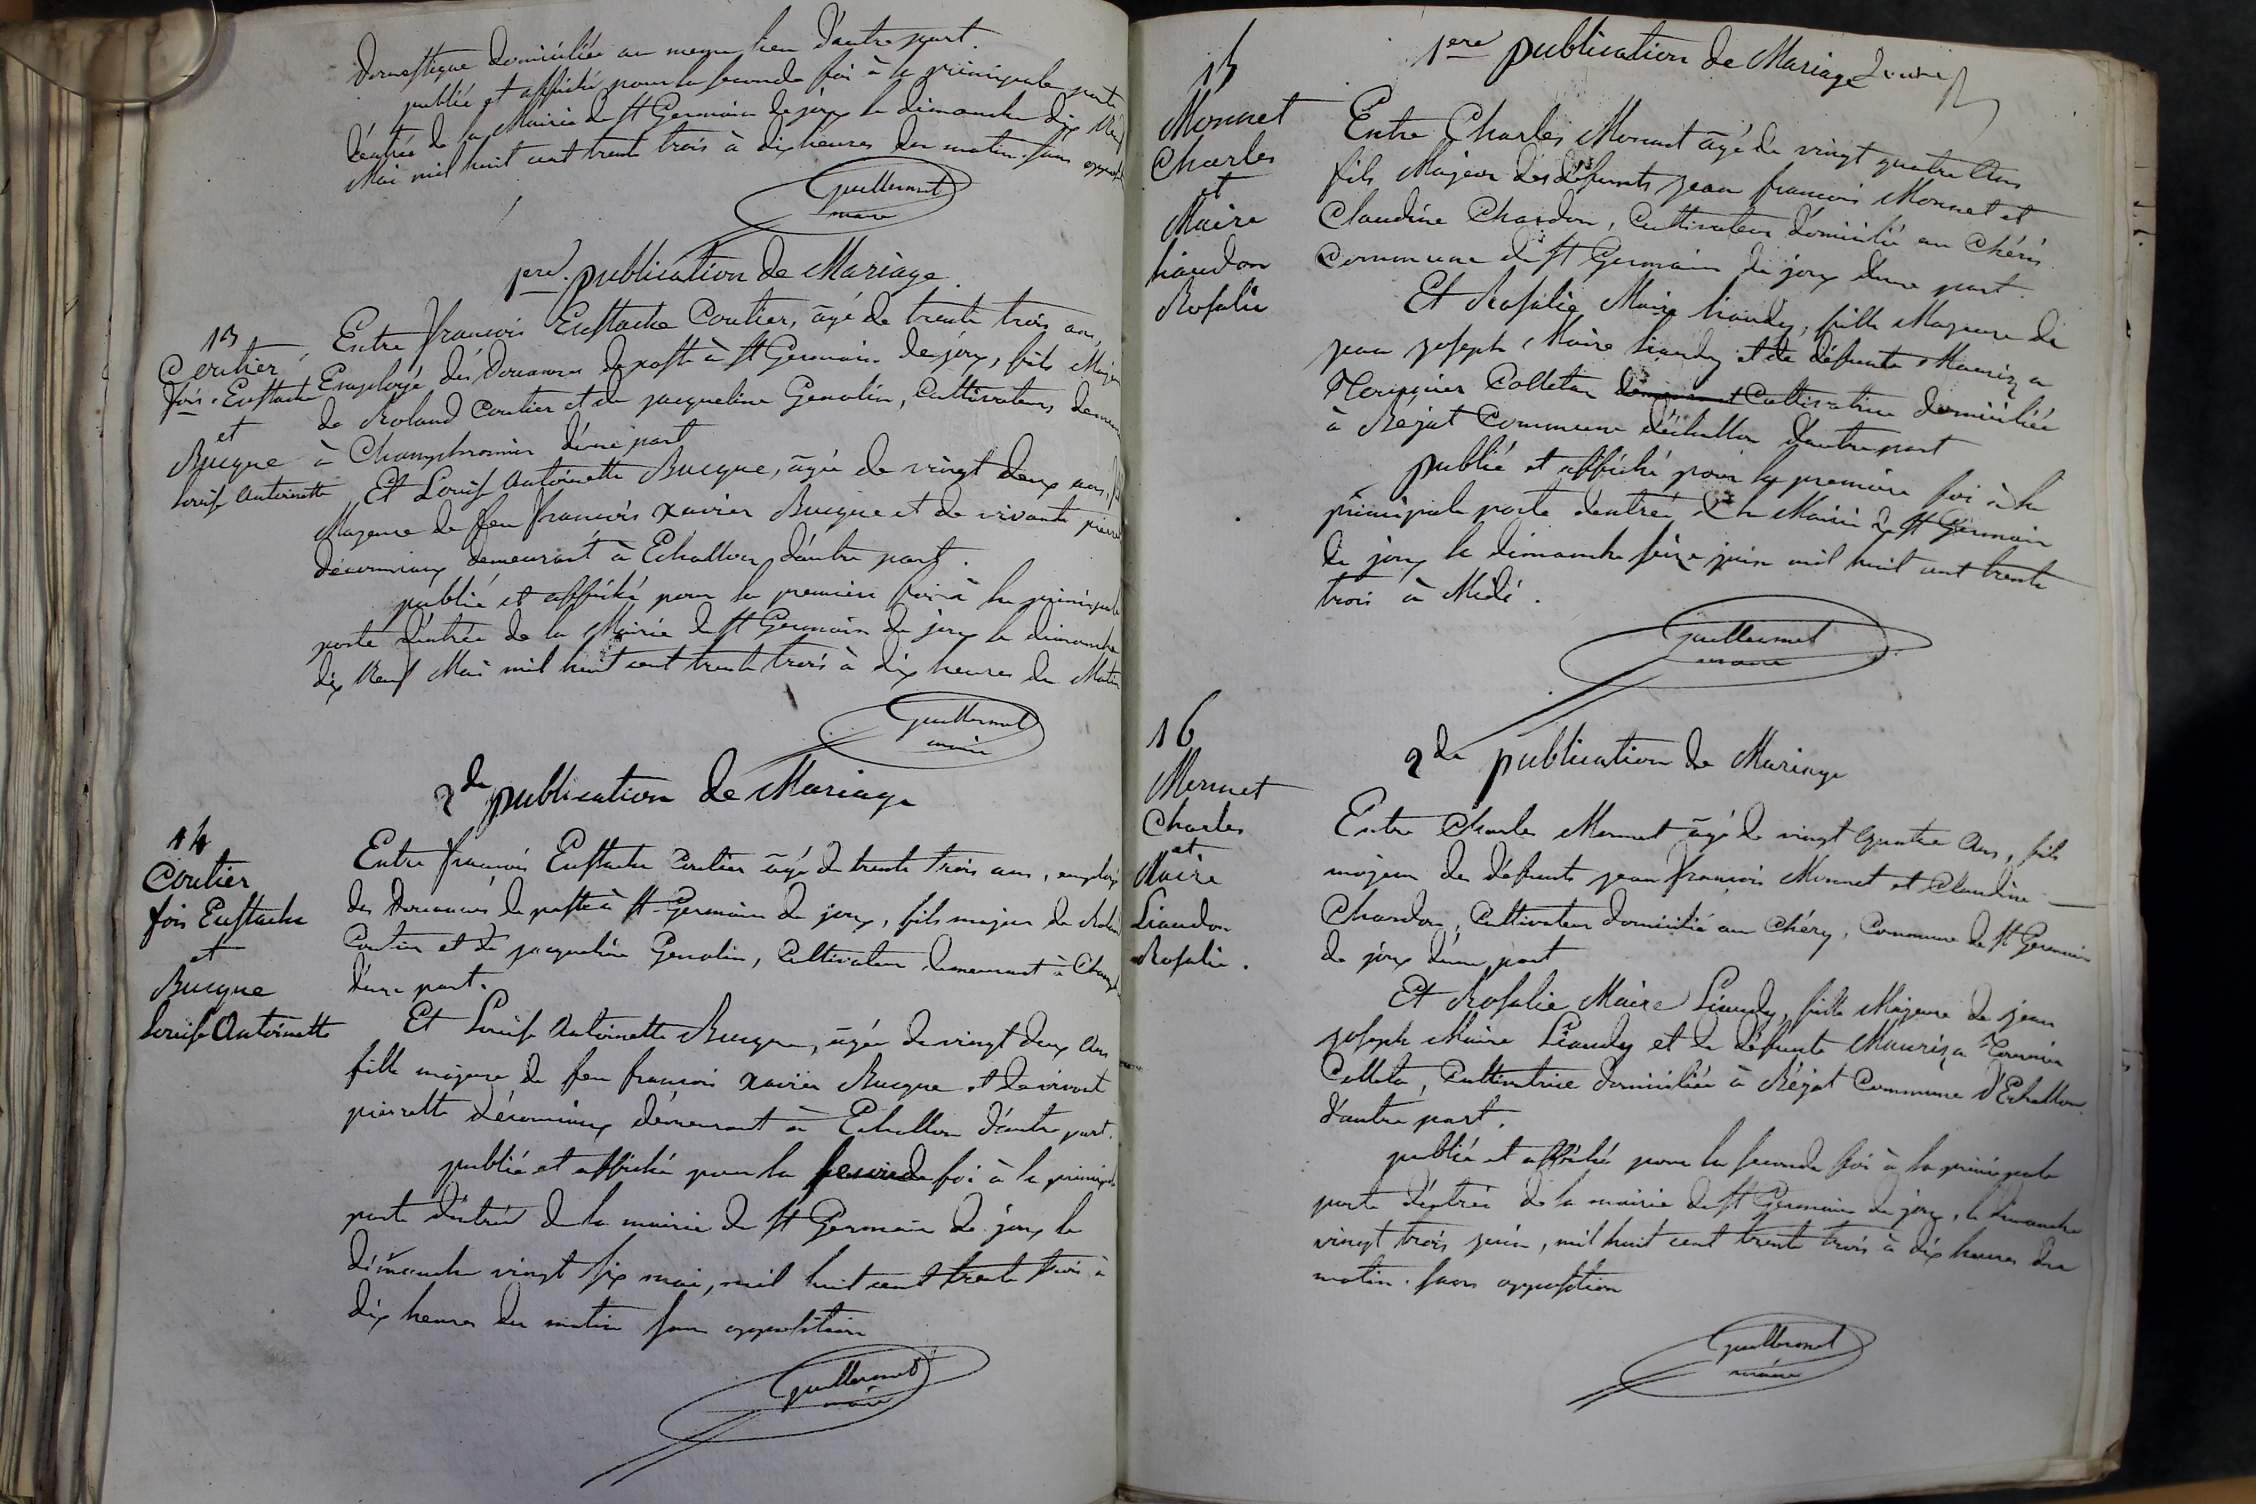 domestique domiciliée au meme lieu d'autre part.
publié et affiché pour la seconde foi à la principale porte
d'entrée de la Mairie de St Germain de joux le dimanche dix neuf
Mai mil huit cent trente trois à dix heures du matin. sans opposition
Guillermet
maire
1ere publication de Mariage.
13
Coutier
fois. Eustache
et
Bucque
louise Antoinette
Entre françois Eustache Coutier, agé de trente trois ans,
Employé des Douanes de poste à St Germain de joux, fils Majeur
de Roland Coutier et de jacqueline Genolin, Cultivateurs
à Champfromier d'une part
Et Louise Antoinette Bucque, agée de vingt deux ans,
Majeure de feu françois Xavier Bucque et de vivante
demeurant à Echallon d'autre part.
publié et affiché pour la première foi à la principale
porte d'entrée de la Mairie de St Germain de joux le dimanche
dix neuf Mai mil huit cent trente trois à dix heures du Matin
Guillermet
maire
2de publication de Mariage
14
Coutier
fois Eustache
et
Bucque
louise Antoinette
Entre françois Eustache Coutier agé de trente trois ans, employé
des Douanes de poste à St Germain de joux, fils majeur de Roland
Coutier et de jacqueline Genolin, Cultivateur demeurant à
d'une part.
Et Louise Antoinette Bucque, agée de vingt deux ans
fille majeure de feu françois Xavier Bucque et de vivante
pierrette demeurant à Echallon d'autre part.
publié et affiché pour la seconde foi à la principale
porte d'entrée de la mairie de St Germain de joux le
dimanche vingt six mai, mil huit cent trente trois à
dix heures du matin sans opposition
Guillermet
maire
15
Monnet
Charles
et
Maire
liaudon
Rosalie
1ere publication de Mariage
Entre Charles Monnet âgé de vingt quatre Ans
fils Majeur des défunts jean françois Monnet et
Claudine Chardon, Cultivateur domicilié au Chéris
Commune de St Germain de joux d'une part.
Et Rosalie Maire liaudy, fille Majeure de
jean joseph Maire liaudy et de défunte Mauriza
Colleta Cultivatrice domiciliée
à Réjat Commune d'échallon d'autre part
publié et affiché pour la premiere foi à la
principale porte d'entrée de la Mairie de St Germain
de joux le dimanche seize juin mil huit cent trente
trois à Midi.
Guillermet
maire
16
Monnet
Charles
et
Maire
Liaudon
Rosalie.
2de publication de Mariage
Entre Charles Monnet âgé de vingt quatre Ans, fils
majeur des défunts jean françois Monnet et Claudine
Chardon, Cultivateur domicilié au Chéry, Commune de St Germain
de joux d'une part
Et Rosalie Maire Liaudy, fille Majeure de jean
joseph Maire Liaudy et de défunte Mauriza
Colleta, Cultivatrice domiciliée à Réjat Commune d'Echallon
d'autre part.
publié et affiché pour la seconde foi à la principale
porte d'entrée de la mairie de St Germain de joux, le dimanche
vingt trois juin, mil huit cent trente trois à dix heures du
matin. sans opposition
Guillermet
maire